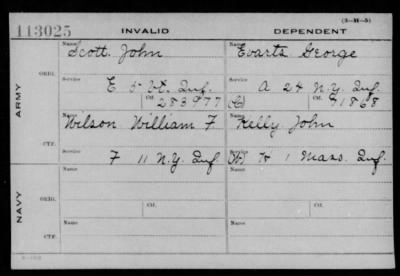 (3-M-5)
113025 INVALID DEPENDENT
Name Scott, John Name Evarts George
ORIG.
Service E 5" Vt. Inf. Service A 24 N.Y. Inf.
Ctf. 283977 (C) Ctf. 91868
ARMY
Name Wilson William F. Name Kelly John
CTF.
Service F 11 N.Y. Inf. Service (W) H 1 Mass. Inf.
Name Name
ORIG.
Ctf. Ctf.
NAVY
Name Name
CTF.